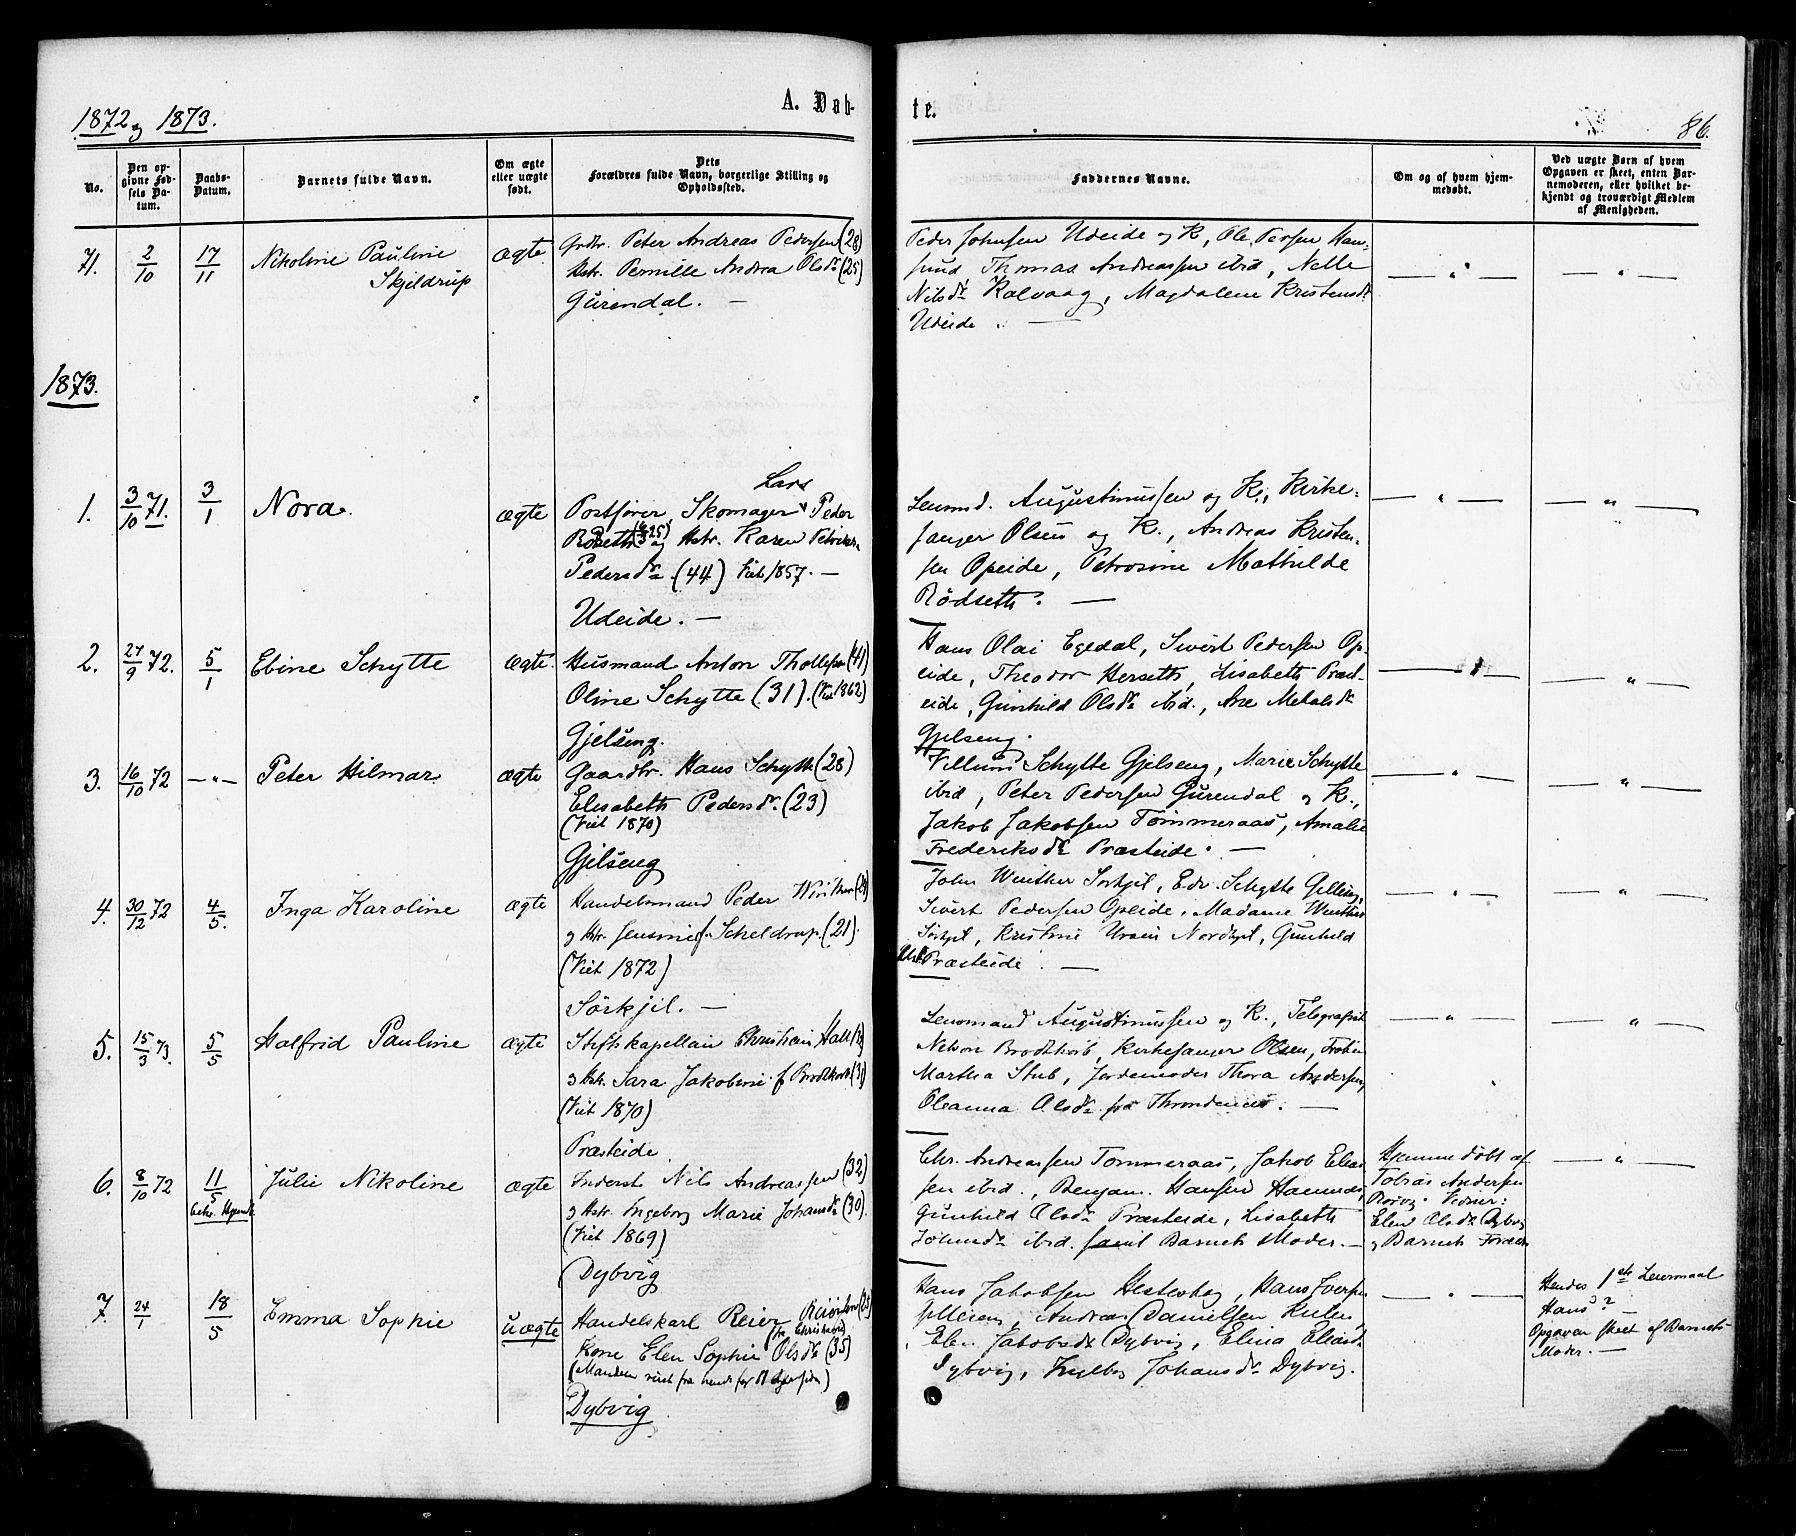 1872 og 1873.
A. Døb-
te.
86.
No.
Den op-
givne Fød-
sels Da-
tum.
Daabs-
Datum.
Barnets fulde Navn.
Om ægte
eller uægte
født.
Dets
Forældres fulde Navn, borgerlige Stilling og
Opholdssted.
Faddernes Navne.
Om og af hvem hjem-
medøbt.
Ved uægte Børn af hvem
Opgaven er skeet, enten Bar-
nemoderen, eller hvilket be-
kjendt og troværdigt Medlem
af Menigheden.
71.
2/10
17/11
Nikoline Pauline
Skjeldrup
ægte
Grdbr. Peter Andreas Pedersen (28)
Hstr. Pernille Andrea Olsdr (25)
Gurendal. —
Peder Johnsen Udeide og K, Ole Persen Han-
sund, Thomas Andreassen ibid, Nelle
Nilsdr Kalvaag, Magdalene Kristensdr
Udeide. —
— " —
— " —
1873.
1.
3/10 71.
3/1
Nora.
ægte
Lars
Postfører, Skomager Peder
Rødseth og Hstr. Karen
Pedersdr (44) Viet 1857. —
Udeide. —
Lensmd. Augustinussen og K., Kirke-
sanger Olsen og K., Andreas Kristen-
sen Opeide, Petrosine Mathilde
Rødseth. —
— " —
"
2.
27/9 72.
5/1
Ebine Schytte
ægte.
Husmand Anton Thollefsen (41)
Oline Schytte (31). (Viet 1862)
Gjelseng.
Hans Olai Egedal, Sivert Pedersen Op-
eide, Theodor Herseth, Lisabeth Præst-
eide, Gunhild Olsdr ibid., Ane Mehalsdr
Gjelseng.
— " —
— " —
3.
16/10 72
— " —
Peter Hilmar
ægte
Gaardbr. Hans Schytte (28)
Elisabeth Pedersdr. (23)
(Viet 1870)
Gjelseng
Villum Schytte Gjelseng, Marie Schytte
ibid, Peter Pedersen Gurendal og K.,
Jakob Jakobsen Tømmeraas, Amalie
Frederiksdr Præsteide. —
— " —
— " —
4.
30/12 72
4/5.
Inga Karoline
ægte
Handelsmand Peder
og Hstr. Jensine f. Scheldrup. (21).
(Viet 1872)
Sørkjil. —
John Winther Sørkjil, Edv. Schytte Gjelseng,
Sivert Pedersen Opeide, Madame Winther
Sørkjil, Kristine Ursin Nordkjil, Gunhild
Præsteide. —
— " —
— " —
5.
15/3 73.
5/5
Halfrid Pauline
ægte
Stiftskapellan Christian Hall
og Hst. Sara Jakobine f Brodtkorb (31)
(Viet 1870)
Præsteide
Lensmand Augustinussen og K., Telegrafist
Nelson Brodtkorb, Kirkesanger Olsen, Frøken
Martha Stub, Jordemoder Thora Andersen,
Oleanna Olsdr fra Throndenes. —
— " —
— " —
6.
8/10 72
11/5
Julie Nikoline
ægte
Inderst Nils Andreassen (32)
og Hstr. Ingeborg Marie Johansdr (30).
(Viet 1869)
Dybvig
Chr. Andreassen Tømmeraas, Jakob Elias-
sen ibid., Benjam. Hansen Hamnes,
Gunhild Olsdr Præsteide, Lisabeth
Johnsdr ibid. samt Barnets Moder. —
Hjemmedøbt af
Tobias Andersen
Vidner:
Elen Olsdr Dybvig
og Barnets Foræld.
— " —
7.
24/1
18/5
Emma Sophie
uægte
Handelskarl Reier
Kone Elen Sophie Olsdr (35)
(Manden reist fra hende for
Dybvig
Hans Jakobsen
Andreas Danielsen
Elen Jakobsdr Dybvig, Elena Eliasdr
Dybvig, Johansdr Dybvig.
— " —
Hendes 1ste Leiermaal
Hans? —
Opgaven skeet af Barnets
Moder. —